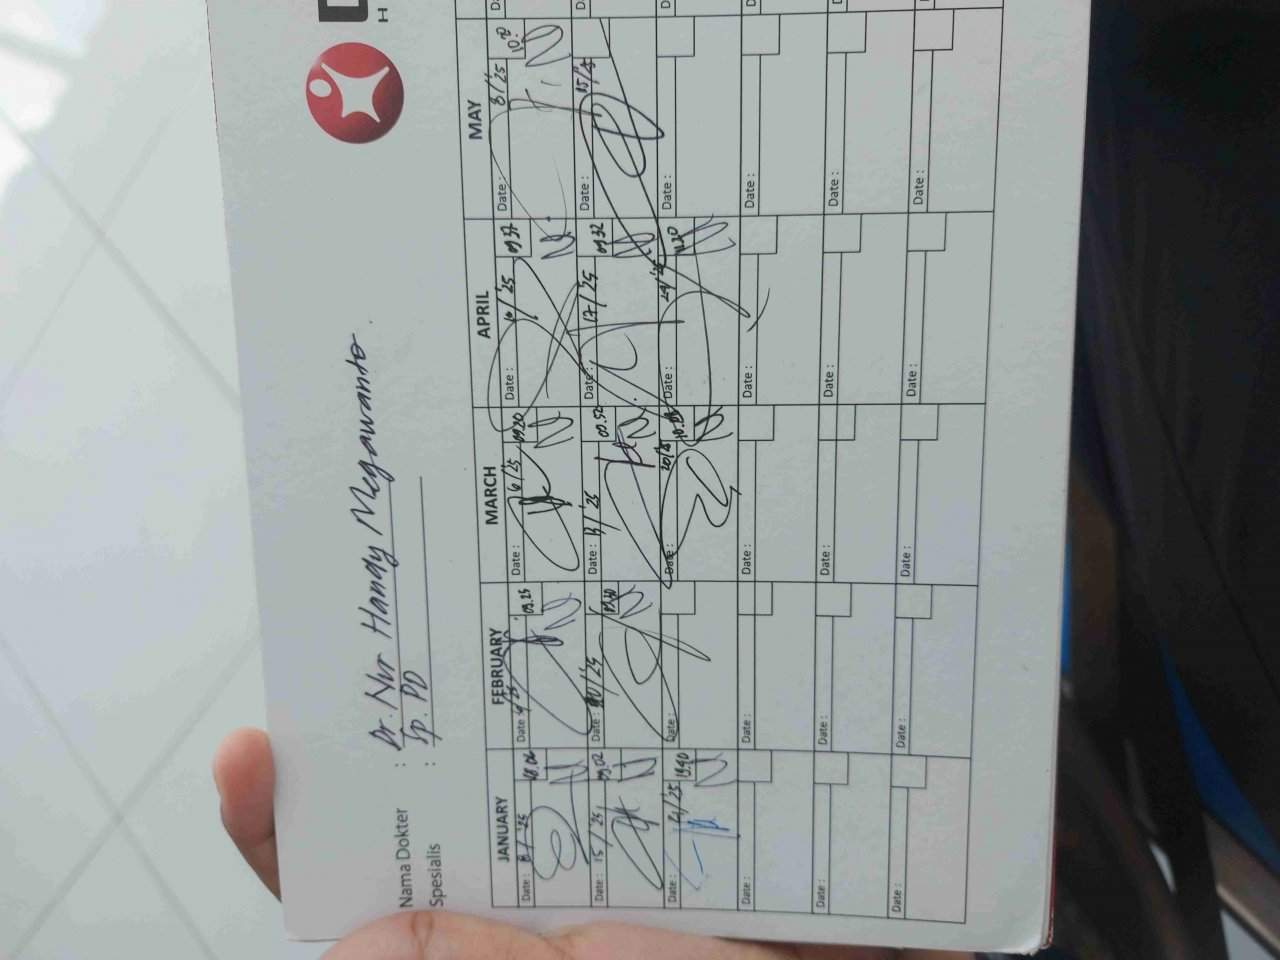 Nama Dokter : Dr. Nur Handy Megawanto.
Spesialis : Sp. PD
JANUARY FEBRUARY MARCH APRIL MAY
Date : 8/'25 10.06 Date : 4/'25 09.25 Date : 6/'25 09.20 Date : 10/'25 09.37 Date : 8/'25 10.
Date : 15/'25 09.02 Date : 20/'25 Date : 13/'25 09.52 Date : 17/'25 09.32 Date : 15/'25
Date : 13.40 Date : Date : 20/'25 10.05 Date : 24/'25 11.20 Date :
Date : Date : Date : Date : Date :
Date : Date : Date : Date : Date :
Date : Date : Date : Date : Date :